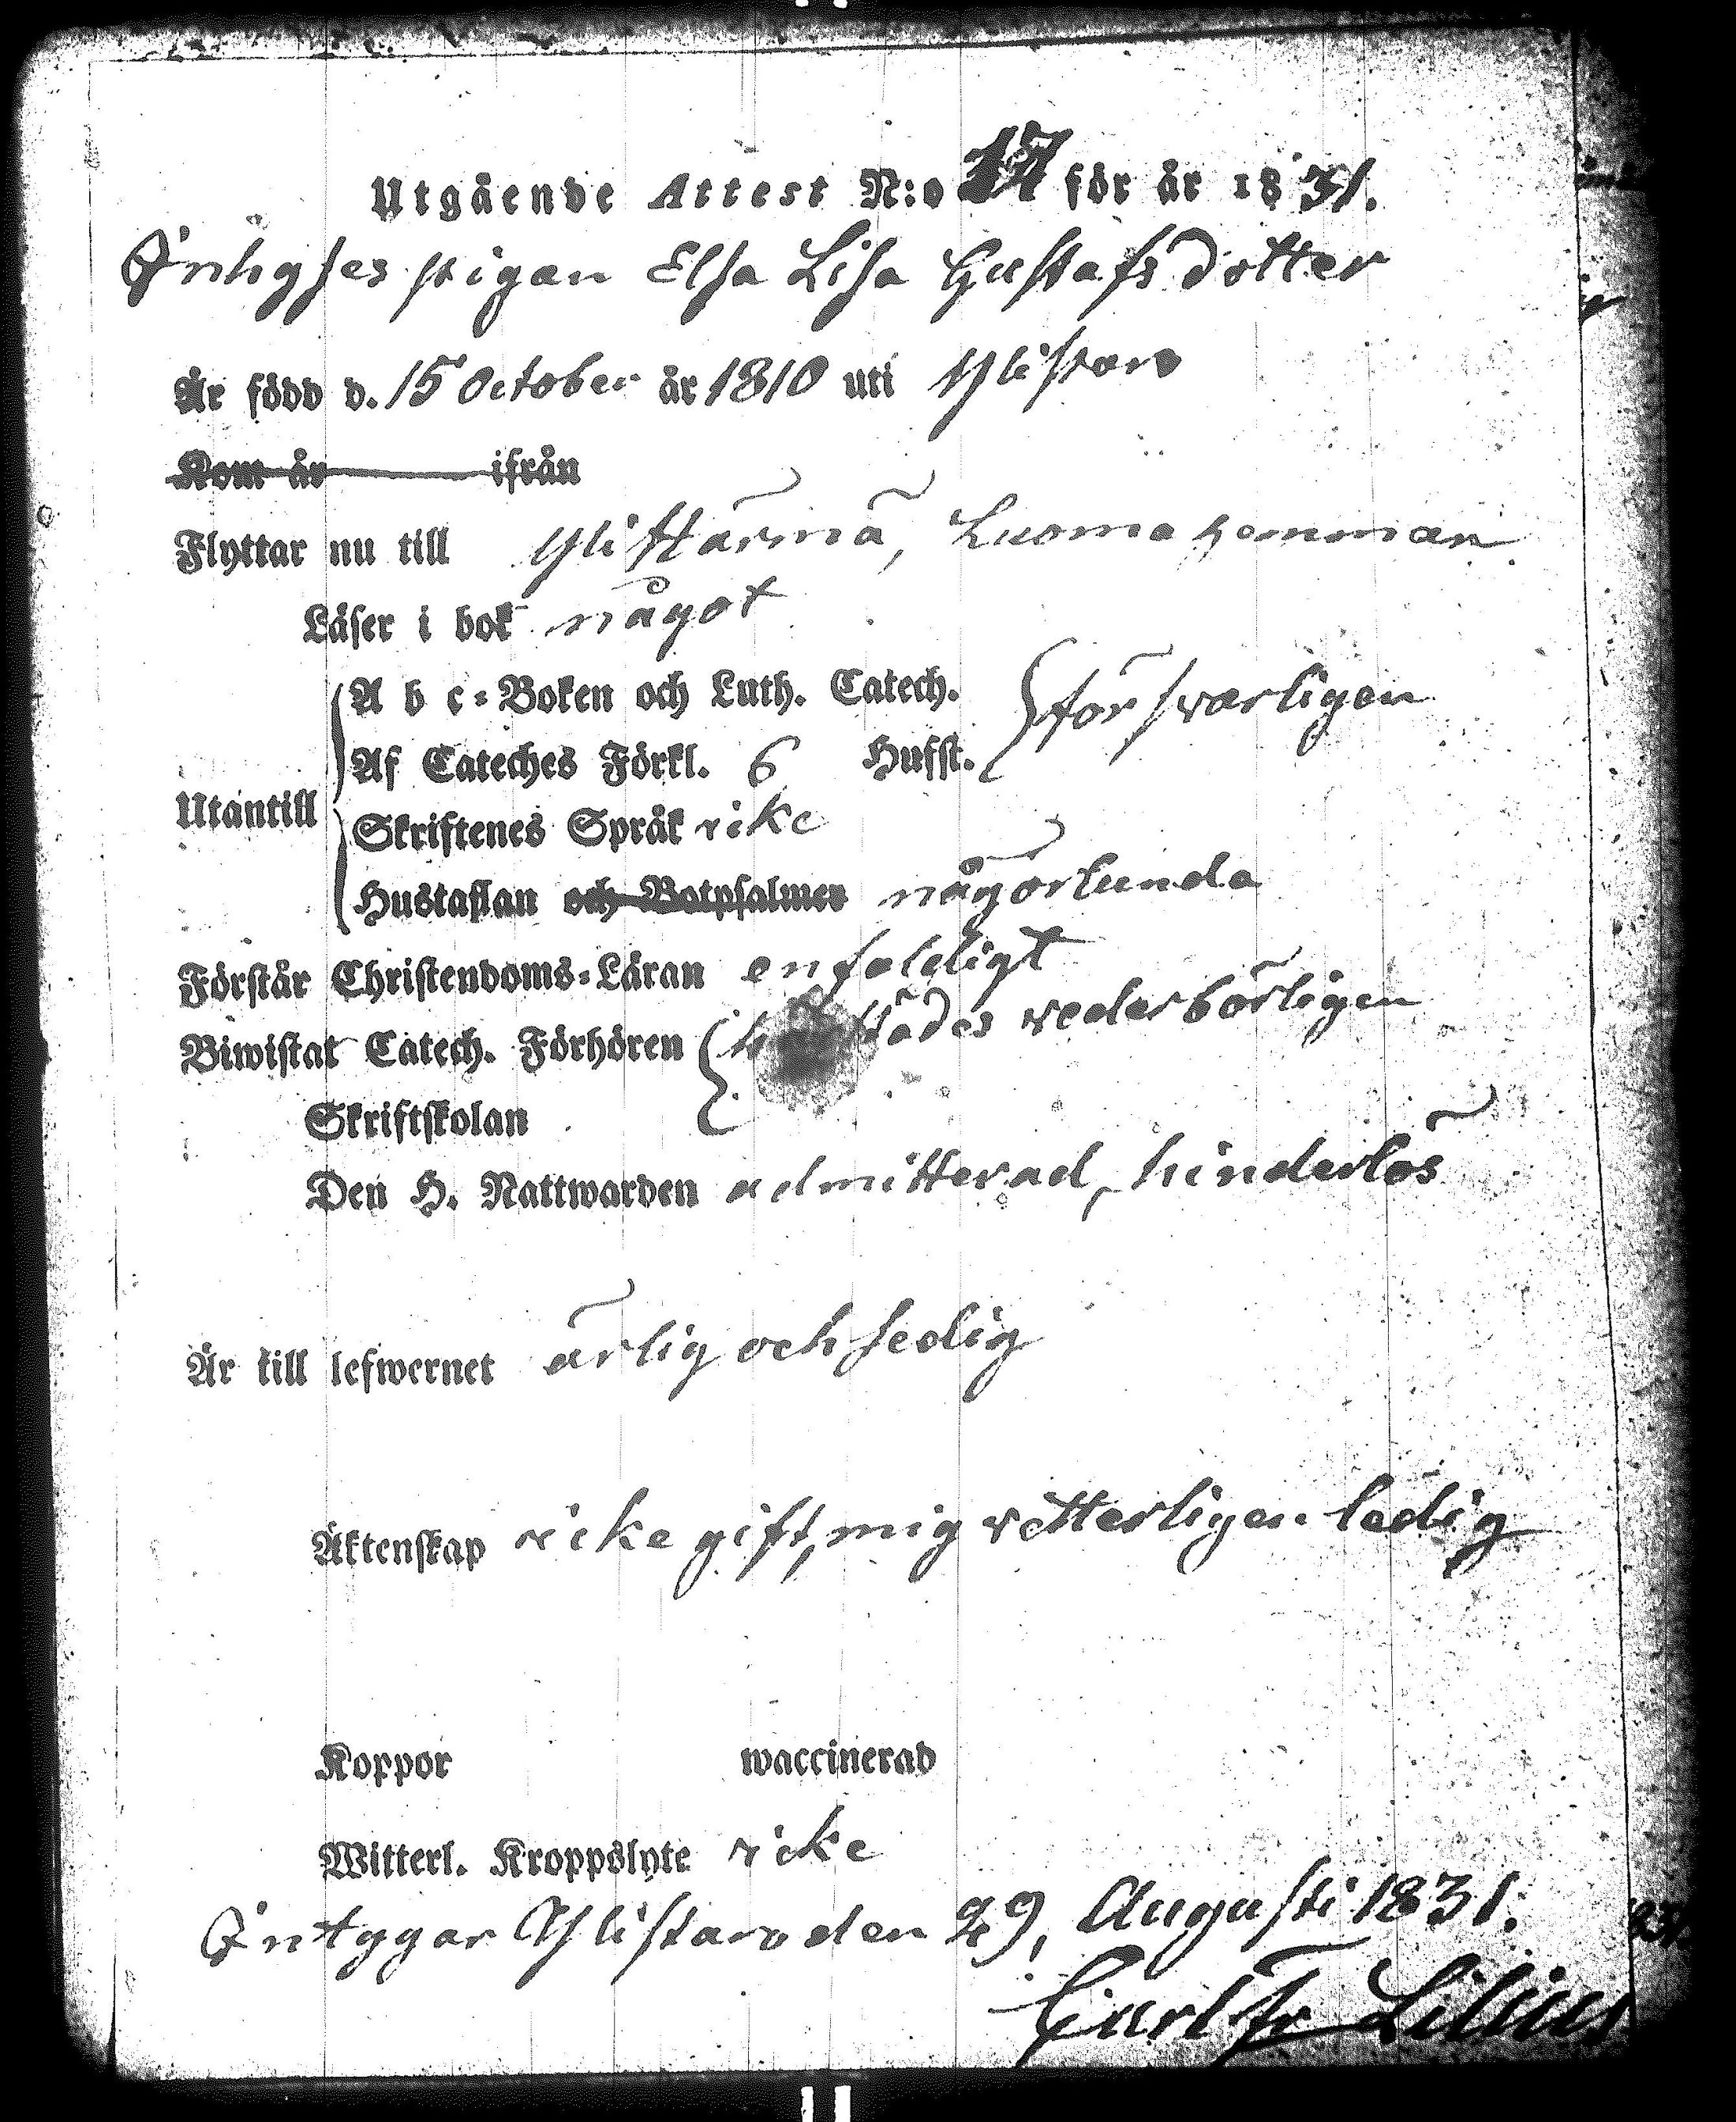 Utgående Attest N:o 17 för år 1831.
Inhyses pigan Elsa Lisa Gustafsdotter
Är född d. 15 October år 1810 uti Ylistaro
Kom år ifrån
Flyttar nu till Ylistärmä, Luoma hemman
Läser i bok något
A b c-Boken och Luth. Catech.
Af Cateches Förkl. 6 Hufst. försvarligen
Utantill
Skriftenes Språk icke
Hustaflan och Botpsalmer någorlunda
Förstår Christendoms-Läran enfaldigt
Biwistat Catech. Förhören vederbörligen
Skriftskolan
Den H. Nattwarden admitterad, hinderlös
Är till lefwernet ärlig och sedig
Äktenskap icke gift, mig vitterligen ledig
Koppor waccinerad
Witterl. Kroppslyte icke
Intygar Ylistaro den 29, Augusti 1831.
Carl Fr Lilius